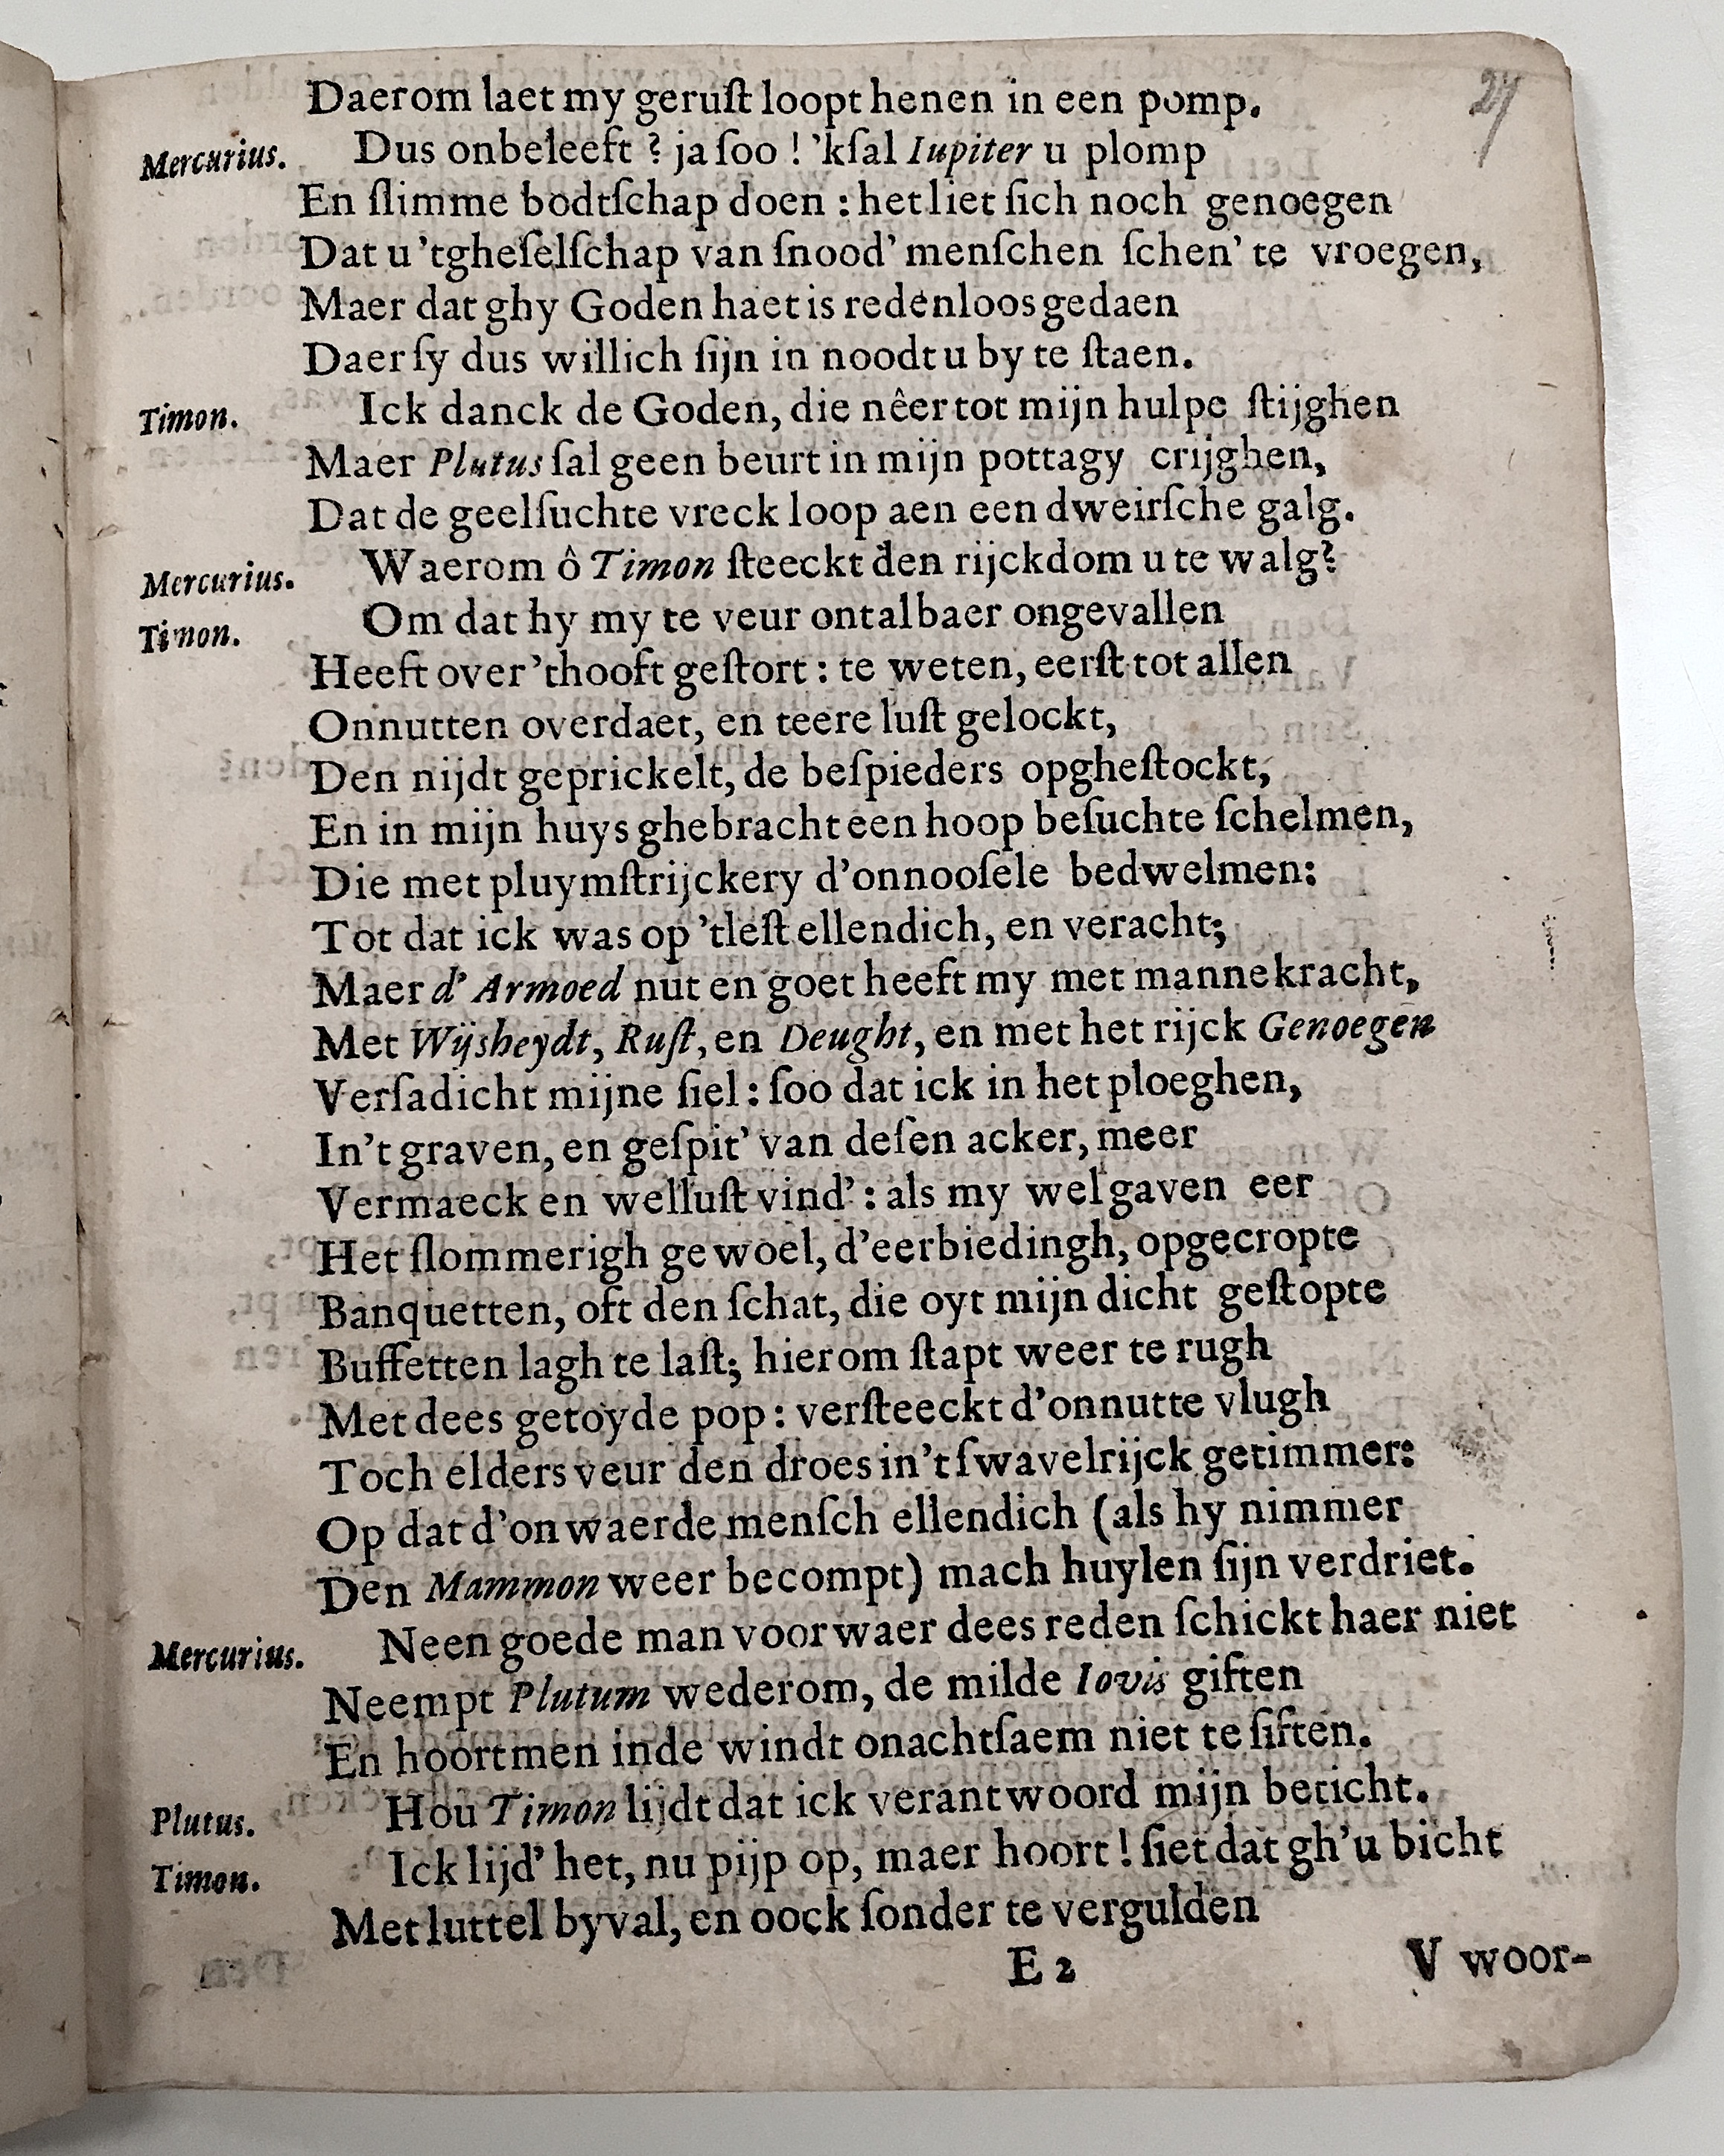 27
Daerom laet my geruſt loopt henen in een pomp.
Mercurius. Dus onbeleeft ? ja ſoo ! 'kſal Iupiter u plomp
En ſlimme bodtſchap doen : het liet ſich noch genoegen
Dat u 'tgheſelſchap van ſnood' menſchen ſchen' te vroegen,
Maer dat ghy Goden haet is redenloos gedaen
Daer ſy dus willich ſijn in noodt u by te ſtaen.
Timon. Ick danck de Goden, die nêer tot mijn hulpe ſtijghen
Maer Plutus ſal geen beurt in mijn pottagy crijghen,
Dat de geelſuchte vreck loop aen een dweirſche galg.
Mercurius. Waerom ô Timon ſteeckt den rijckdom u te walg?
Timon. Om dat hy my te veur ontalbaer ongevallen
Heeft over 'thooft geſtort : te weten, eerſt tot allen
Onnutten overdaet, en teere luſt gelockt,
Den nijdt geprickelt, de beſpieders opgheſtockt,
En in mijn huys ghebracht een hoop beſuchte ſchelmen,
Die met pluymſtrijckery d'onnooſele bedwelmen:
Tot dat ick was op 'tleſt ellendich, en veracht;
Maer d' Armoed nut en goet heeft my met mannekracht,
Met Wijsheydt, Ruſt, en Deught, en met het rijck Genoegen
Verſadicht mijne ſiel : ſoo dat ick in het ploeghen,
In't graven, en geſpit' van deſen acker, meer
Vermaeck en welluſt vind' : als my wel gaven eer
Het ſlommerigh gewoel, d'eerbiedingh, opgecropte
Banquetten, oft den ſchat, die oyt mijn dicht geſtopte
Buffetten lagh te laſt; hierom ſtapt weer te rugh
Met dees getoyde pop : verſteeckt d'onnutte vlugh
Toch elders veur den droes in't ſwavelrijck getimmer:
Op dat d'onwaerde menſch ellendich (als hy nimmer
Den Mammon weer becompt) mach huylen ſijn verdriet.
Mercurius. Neen goede man voorwaer dees reden ſchickt haer niet
Neempt Plutum wederom, de milde Iovis giften
En hoort men inde windt onachtſaem niet te ſiften.
Plutus. Hou Timon lijdt dat ick verantwoord mijn beticht.
Timon. Ick lijd' het, nu pijp op, maer hoort ! ſiet dat gh'u bicht
Met luttel byval, en oock ſonder te vergulden
E 2 V woor-